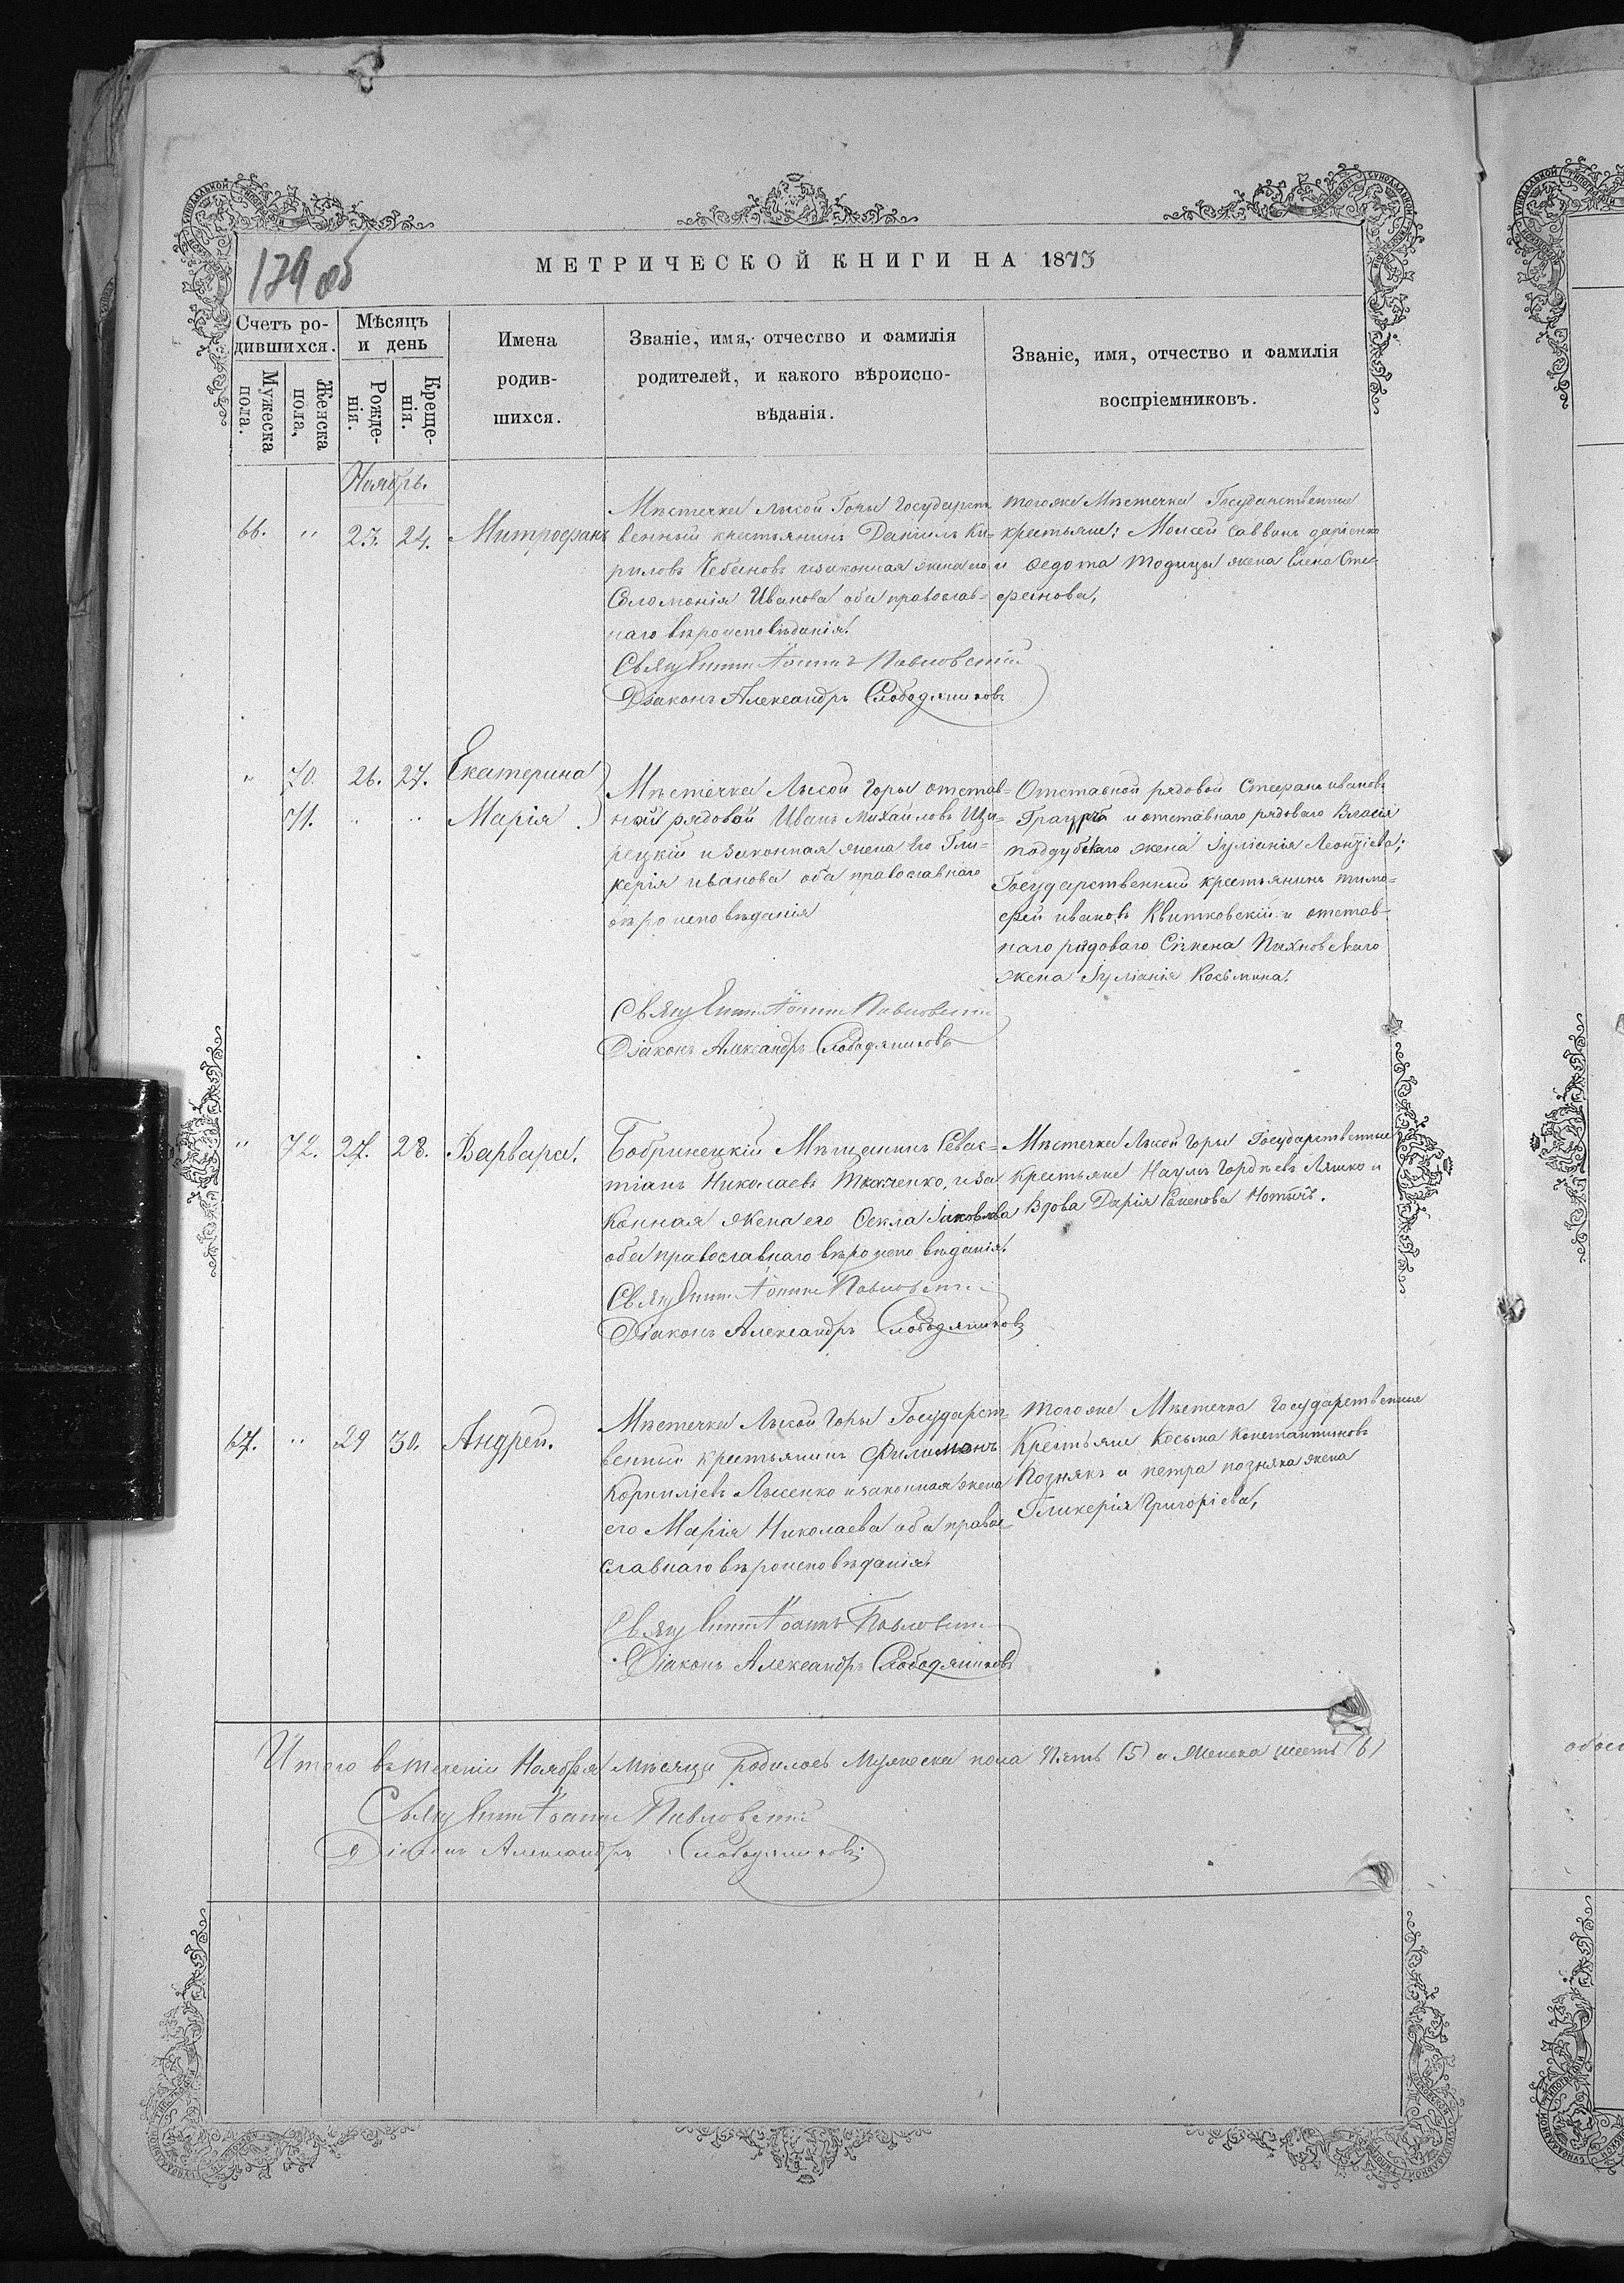 179 об
МЕТРИЧЕСКОЙ КНИГИ НА 1873
Счетъ ро-
дившихся.
Мужеска
пола.
Женска
пола,
Мѣсяцъ
и день
Рожде-
нія.
Креще-
нія.
Имена
родив-
шихся.
Званіе, имя, отчество и фамилія
родителей, и какого вѣроиспо-
вѣданія.
Званіе, имя, отчество и фамилія
воспріемниковъ.
Ноябрь.
66. " 23. 24. Митрофанъ
Мѣстечка Лысой Горы государст-
венный крестьянинъ Даніилъ Ки-
риловъ Чебановъ изаконная жена его
Соломонія Иванова оба православ-
наго вѣроисповѣданія.
Священникъ Іоаннъ Павловскій
Діаконъ Александръ Слободяниковъ
тогоже Мѣстечка Государственные
крестьяне: Моисей Саввинъ
и Ѳедота жена Елена Сте-
фанова,
" 70. 26. 27. Екатерина
71. " " Марія
Мѣстечка Лысой Горы отстав-
ной рядовой Иванъ Михайловъ Ци-
рецкій изаконная жена его Гли-
керія иванова оба православнаго
вѣроисповѣданія
Священникъ Іоаннъ Павловскій
Діаконъ Александръ Слободяниковъ
Отставной рядовой Стефанъ ивановъ
и отставнаго рядоваго Власія
поддубскаго жена Іуліанія Леонтіева;
Государственный крестьянинъ тимо-
фей ивановъ Квитковскій и отстав-
наго рядоваго
жена Іуліанія Косьмина.
" 72. 27. 28. Варвара.
Бобринецкій Мѣщанинъ Севас-
тіанъ Николаевъ Ткаченко, иза
конная жена его Ѳекла Іаковлева
оба православнаго вѣроисповѣданія.
Священникъ Іоаннъ Павловскій
Діаконъ Александръ Слободяниковъ
Мѣстечка Лысой Горы Государственные
крестьяне Наумъ Гордѣевъ Ляшко и
вдова Дарія Семенова
67. " 29 30. Андрей.
Мѣстечка Лысой Горы Государст-
венный крестьянинъ Филимонъ
Корниліевъ Лысенко изаконная жена
его Марія Николаева оба право-
славнаго вѣроисповѣданія
Священникъ Іоаннъ Павловскій
Діаконъ Александръ Слободяниковъ
тогоже Мѣстечка государственные
Крестьяне Косьма Константиновъ
Познякъ и петра позняка жена
Гликерія Григоріева,
Итого въ теченіи Ноября мѣсяца родилось Мужеска пола Пять (5) а Женска шесть (6)
Священникъ Іоаннъ Павловскій
Діаконъ Александръ Слободяниковъ